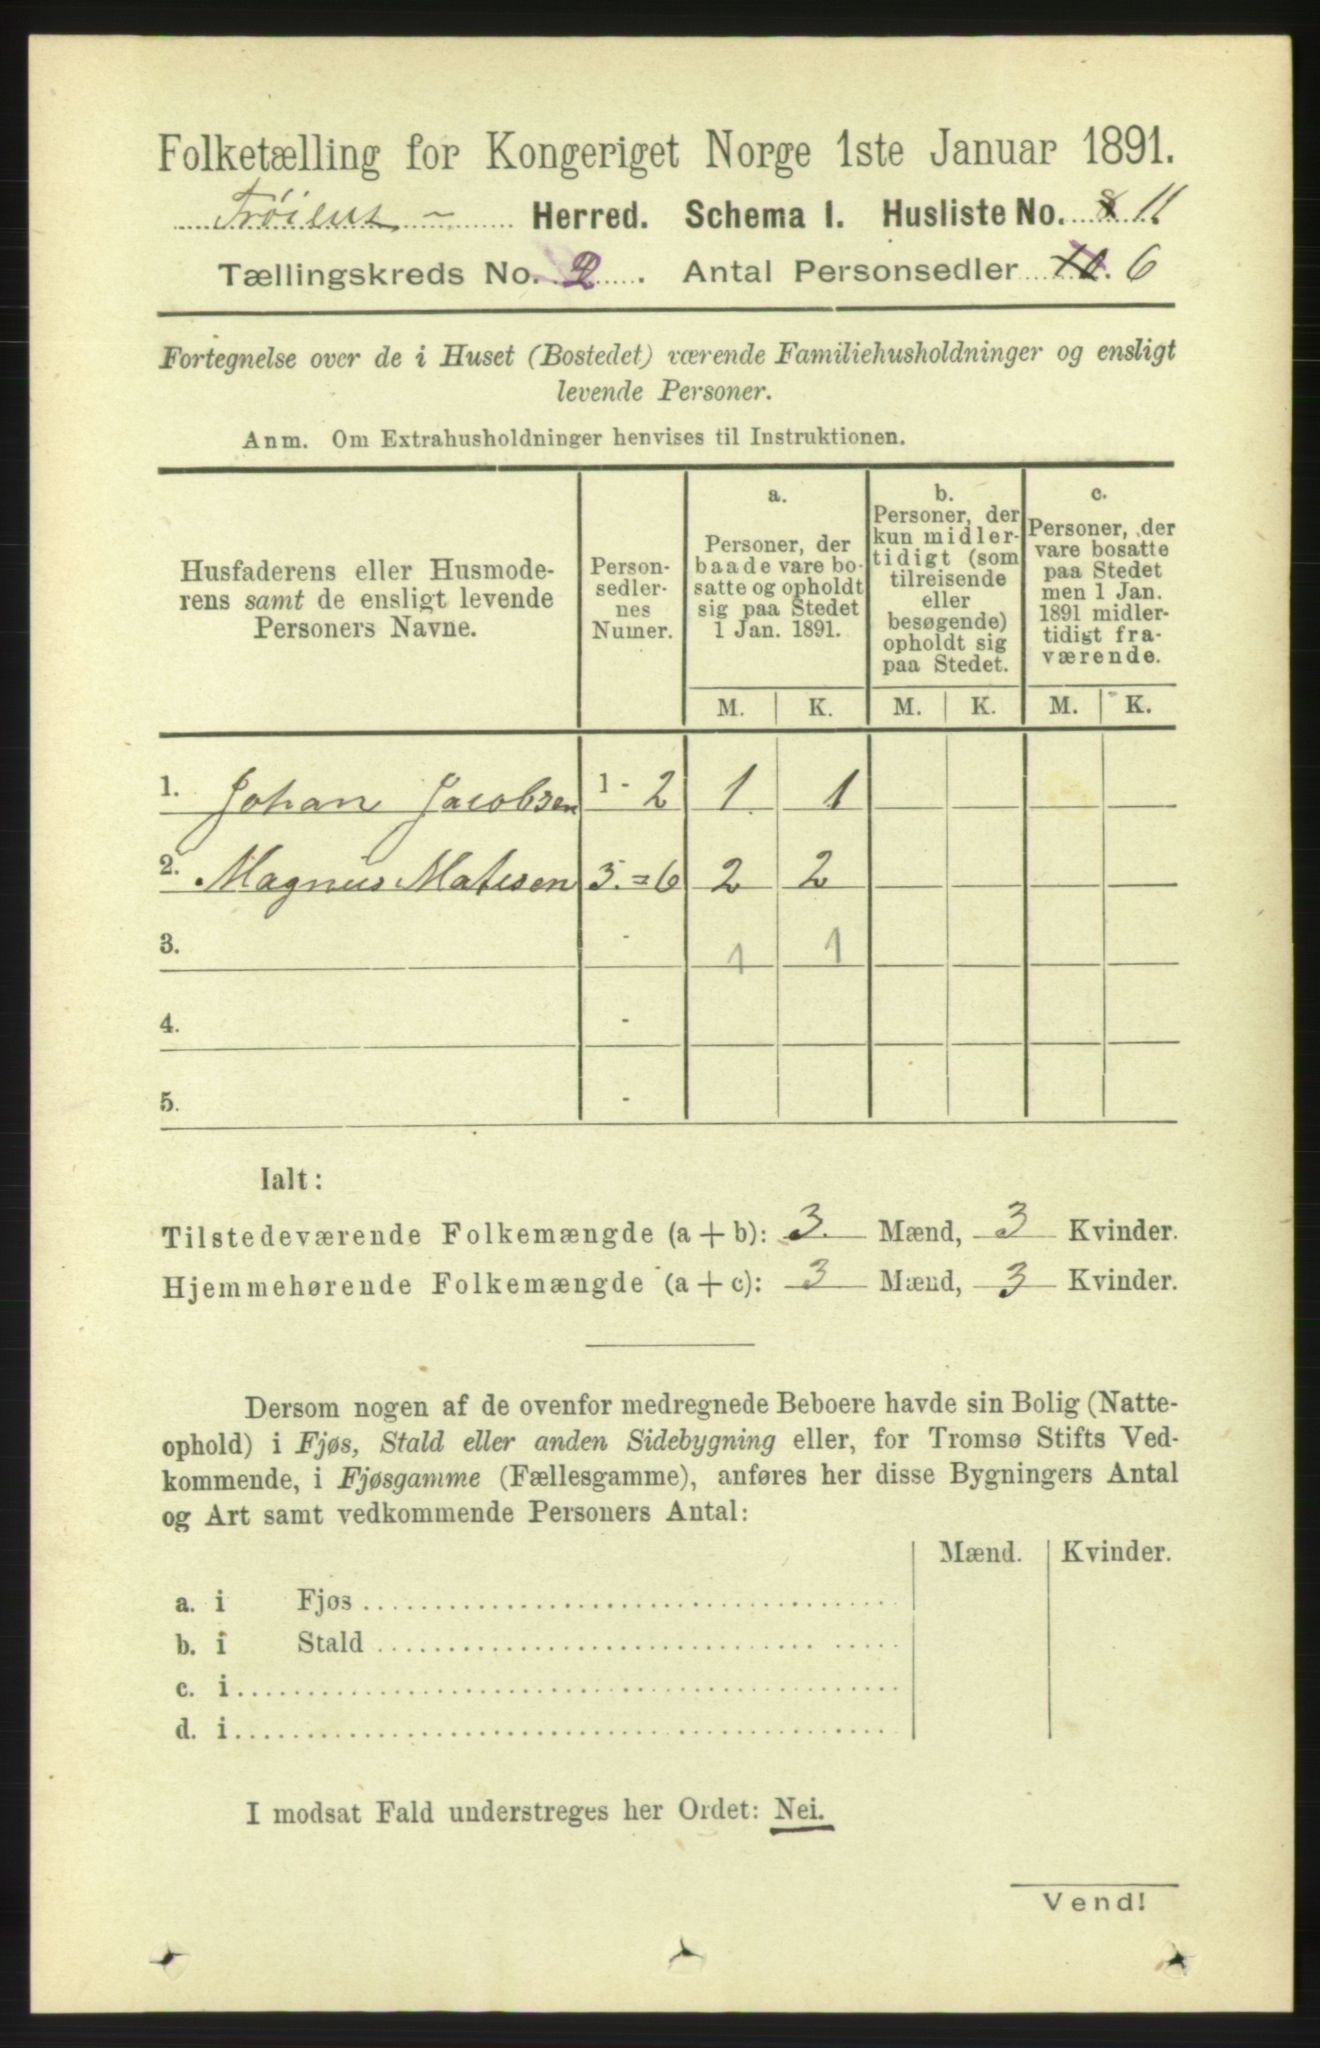 Folketælling for Kongeriget Norge 1ste Januar 1891.
Herred. Schema I. Husliste No. 8 11
Tællingskreds No. 2. Antal Personsedler 6
Fortegnelse over de i Huset (Bostedet) værende Familiehusholdninger og ensligt
levende Personer.
Anm. Om Extrahusholdninger henvises til Instruktionen.
Husfaderens eller Husmode-
rens samt de ensligt levende
Personers Navne.
Person-
sedler-
nes
Numer.
a.
Personer, der
baade vare bo-
satte og opholdt
sig paa Stedet
1 Jan. 1891.
b.
Personer, der
kun midler-
tidigt (som
tilreisende
eller
besøgende)
opholdt sig
paa Stedet.
c.
Personer, der
vare bosatte
paa Stedet
men 1 Jan.
1891 midler-
tidigt fra-
værende.
M. K. M. K. M. K.
1. Johan Jacobsen 1 - 2 1 1
2. Magnus Matisen 3. = 6 2 2
3. - 1 1
4. -
5. -
Ialt:
Tilstedeværende Folkemængde (a + b): 3. Mænd, 3 Kvinder.
Hjemmehørende Folkemængde (a + c): 3 Mænd, 3 Kvinder.
Dersom nogen af de ovenfor medregnede Beboere havde sin Bolig (Natte-
ophold) i Fjøs, Stald eller anden Sidebygning eller, for Tromsø Stifts Ved-
kommende, i Fjøsgamme (Fællesgamme), anføres her disse Bygningers Antal
og Art samt vedkommende Personers Antal:
Mænd. Kvinder.
a. i Fjøs
b. i Stald
c. i
d. i
I modsat Fald understreges her Ordet: Nei.
Vend!